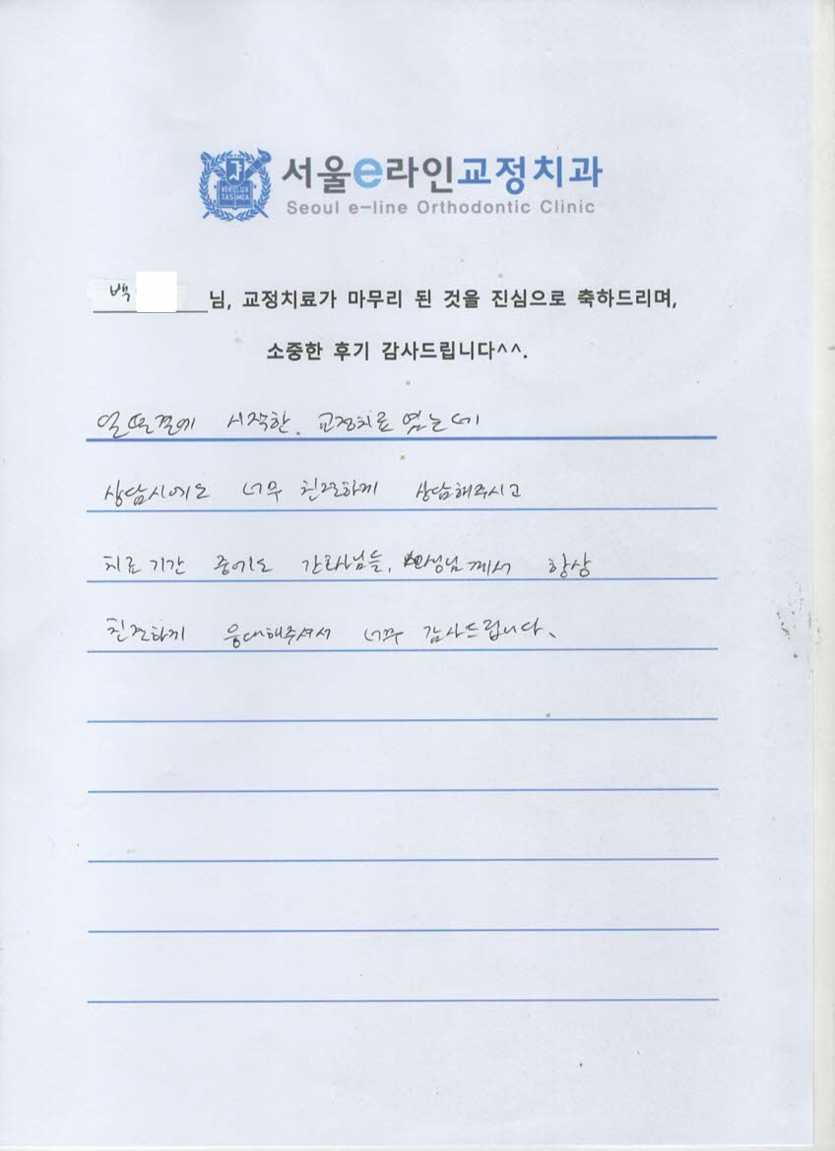 서울e라인교정치과
Seoul e-line Orthodontic Clinic
VERI LUX TAS MEA
백 님, 교정치료가 마무리 된 것을 진심으로 축하드리며,
소중한 후기 감사드립니다^^.
얼떨결에 시작한 교정치료 였는데
상담시에도 너무 친절하게 상담해주시고
치료 기간 중에도 간호사님들, 선생님께서 항상
친절하게 응대해주셔서 너무 감사드립니다.